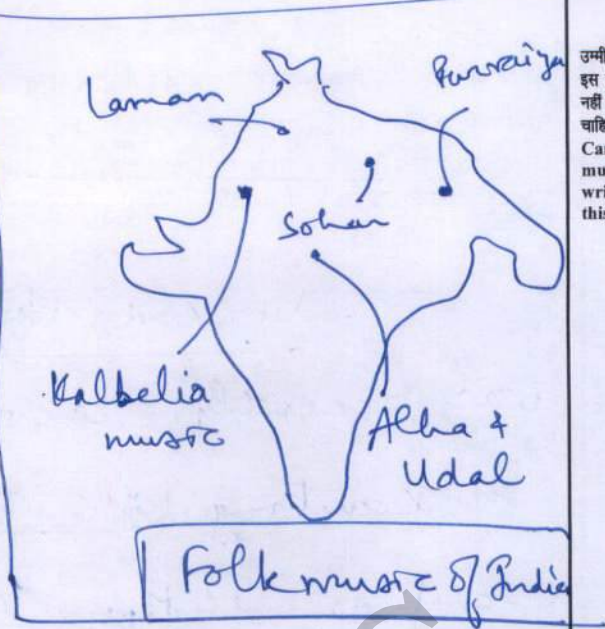 Laman
Purvaiya
Sohar
Kalbelia
music
Alha &
Udal
Folk music of India
उम्मी
इस
नहीं
चाहि
Can
mu
wri
this